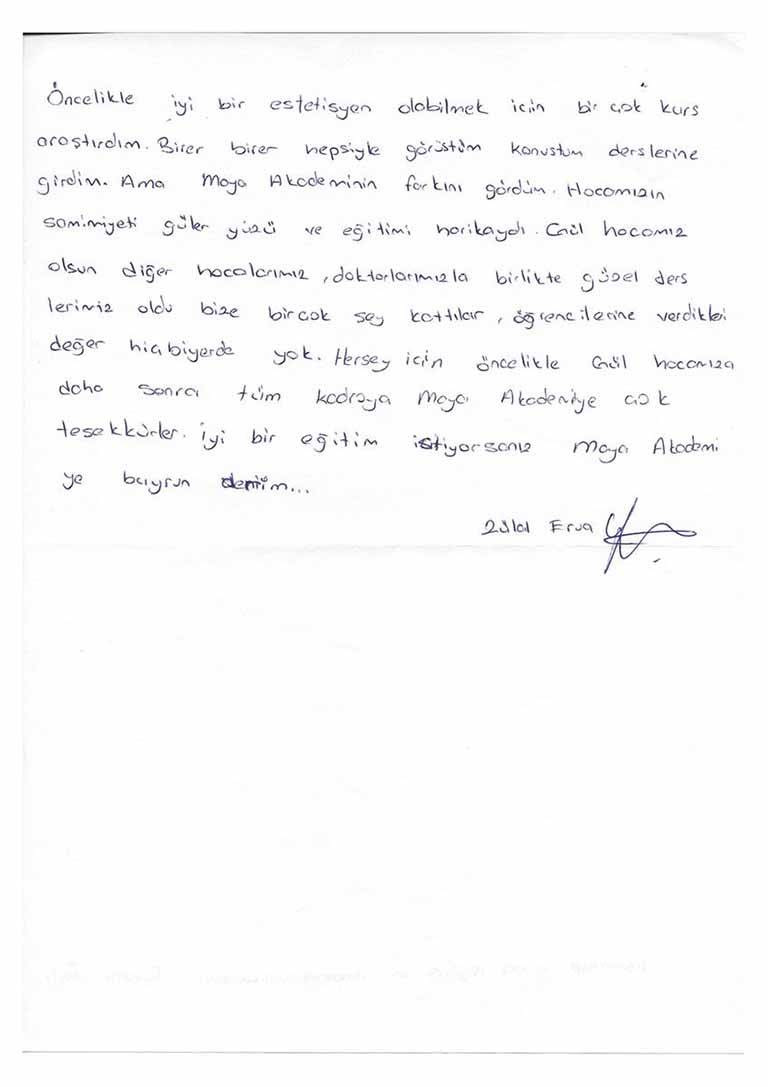 Öncelikle iyi bir estetisyen olabilmek icin bir cok kurs
araştırdım. Birer birer hepsiyle görüstüm konustum derslerine
girdim. Ama Maya Akademinin farkını gördüm. Hocamızın
samimiyeti güler yüzü ve eğitimi harikaydı. Gül hocamız
olsun diğer hocalarımız, doktorlarımızla birlikte güzel ders
lerimiz oldu bize bircok sey kattılar, öğrencilerine verdikleri
değer hicbiyerde yok. Hersey icin öncelikle Gül hocamıza
daha sonra tüm kadroya Maya Akademiye cok
tesekkürler. iyi bir eğitim istiyorsanız Maya Akademi
ye buyrun derim...
Erva